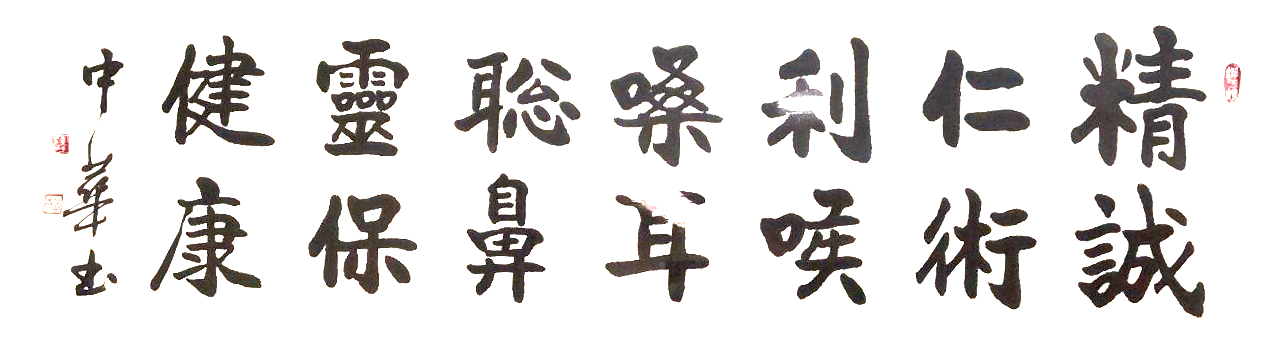 精誠
仁術
利喉
嗓耳
聡鼻
靈保
健康
中華书